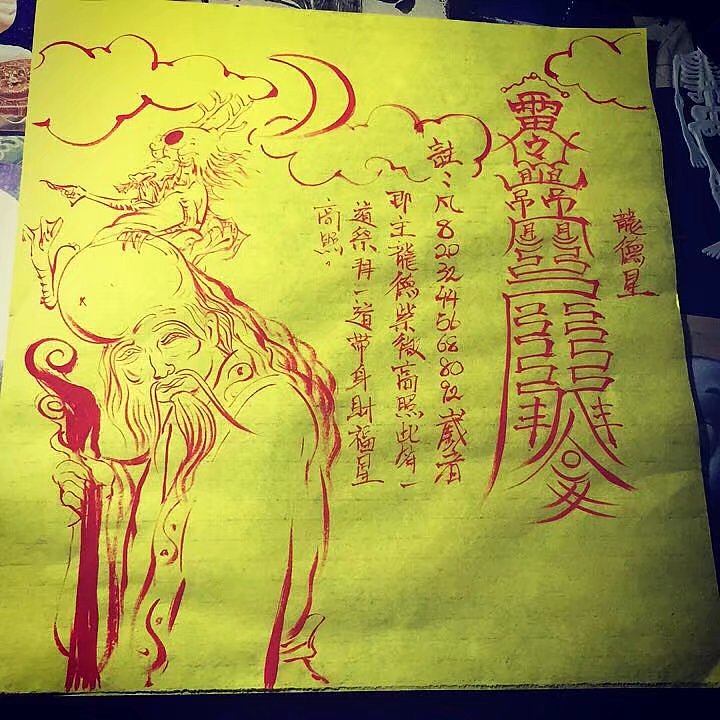 龍德星
註:凡8 20 32 44 56 68 80 92歲者
即主龍德紫微高照此符一
道祭拜一道帶身財福星
高照。